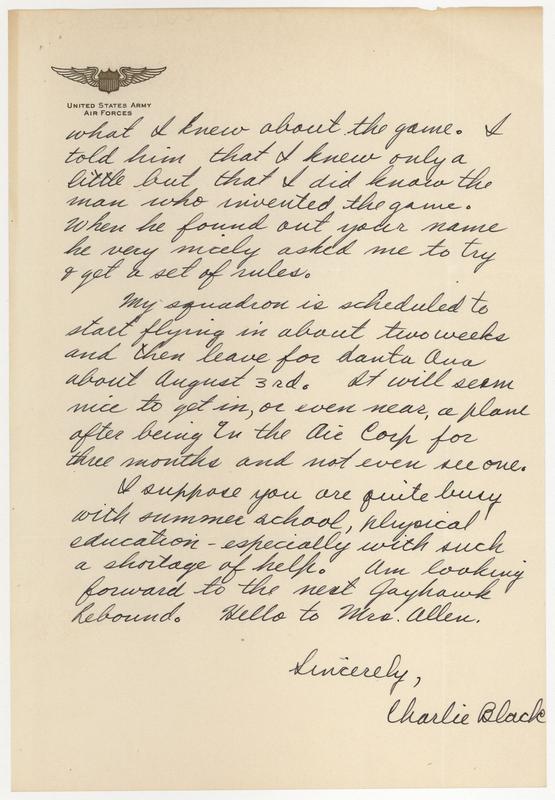 UNITED STATES ARMY
AIR FORCES
what I knew about the game. I
told him that I knew only a
little but that I did know the
man who invented the game.
When he found out your name
he very nicely asked me to try
& get a set of rules.
My squadron is scheduled to
start flying in about two weeks
and then leave for Santa Ana
about August 3rd. It will seem
nice to get in, or even near, a plane
after being in the Air Corp for
three months and not even see one.
I suppose you are quite busy
with summer school, physical
education - especially with such
a shortage of help. Am looking
forward to the next Jayhawk
Rebound. Hello to Mrs. Allen.
Sincerely,
Charlie Black